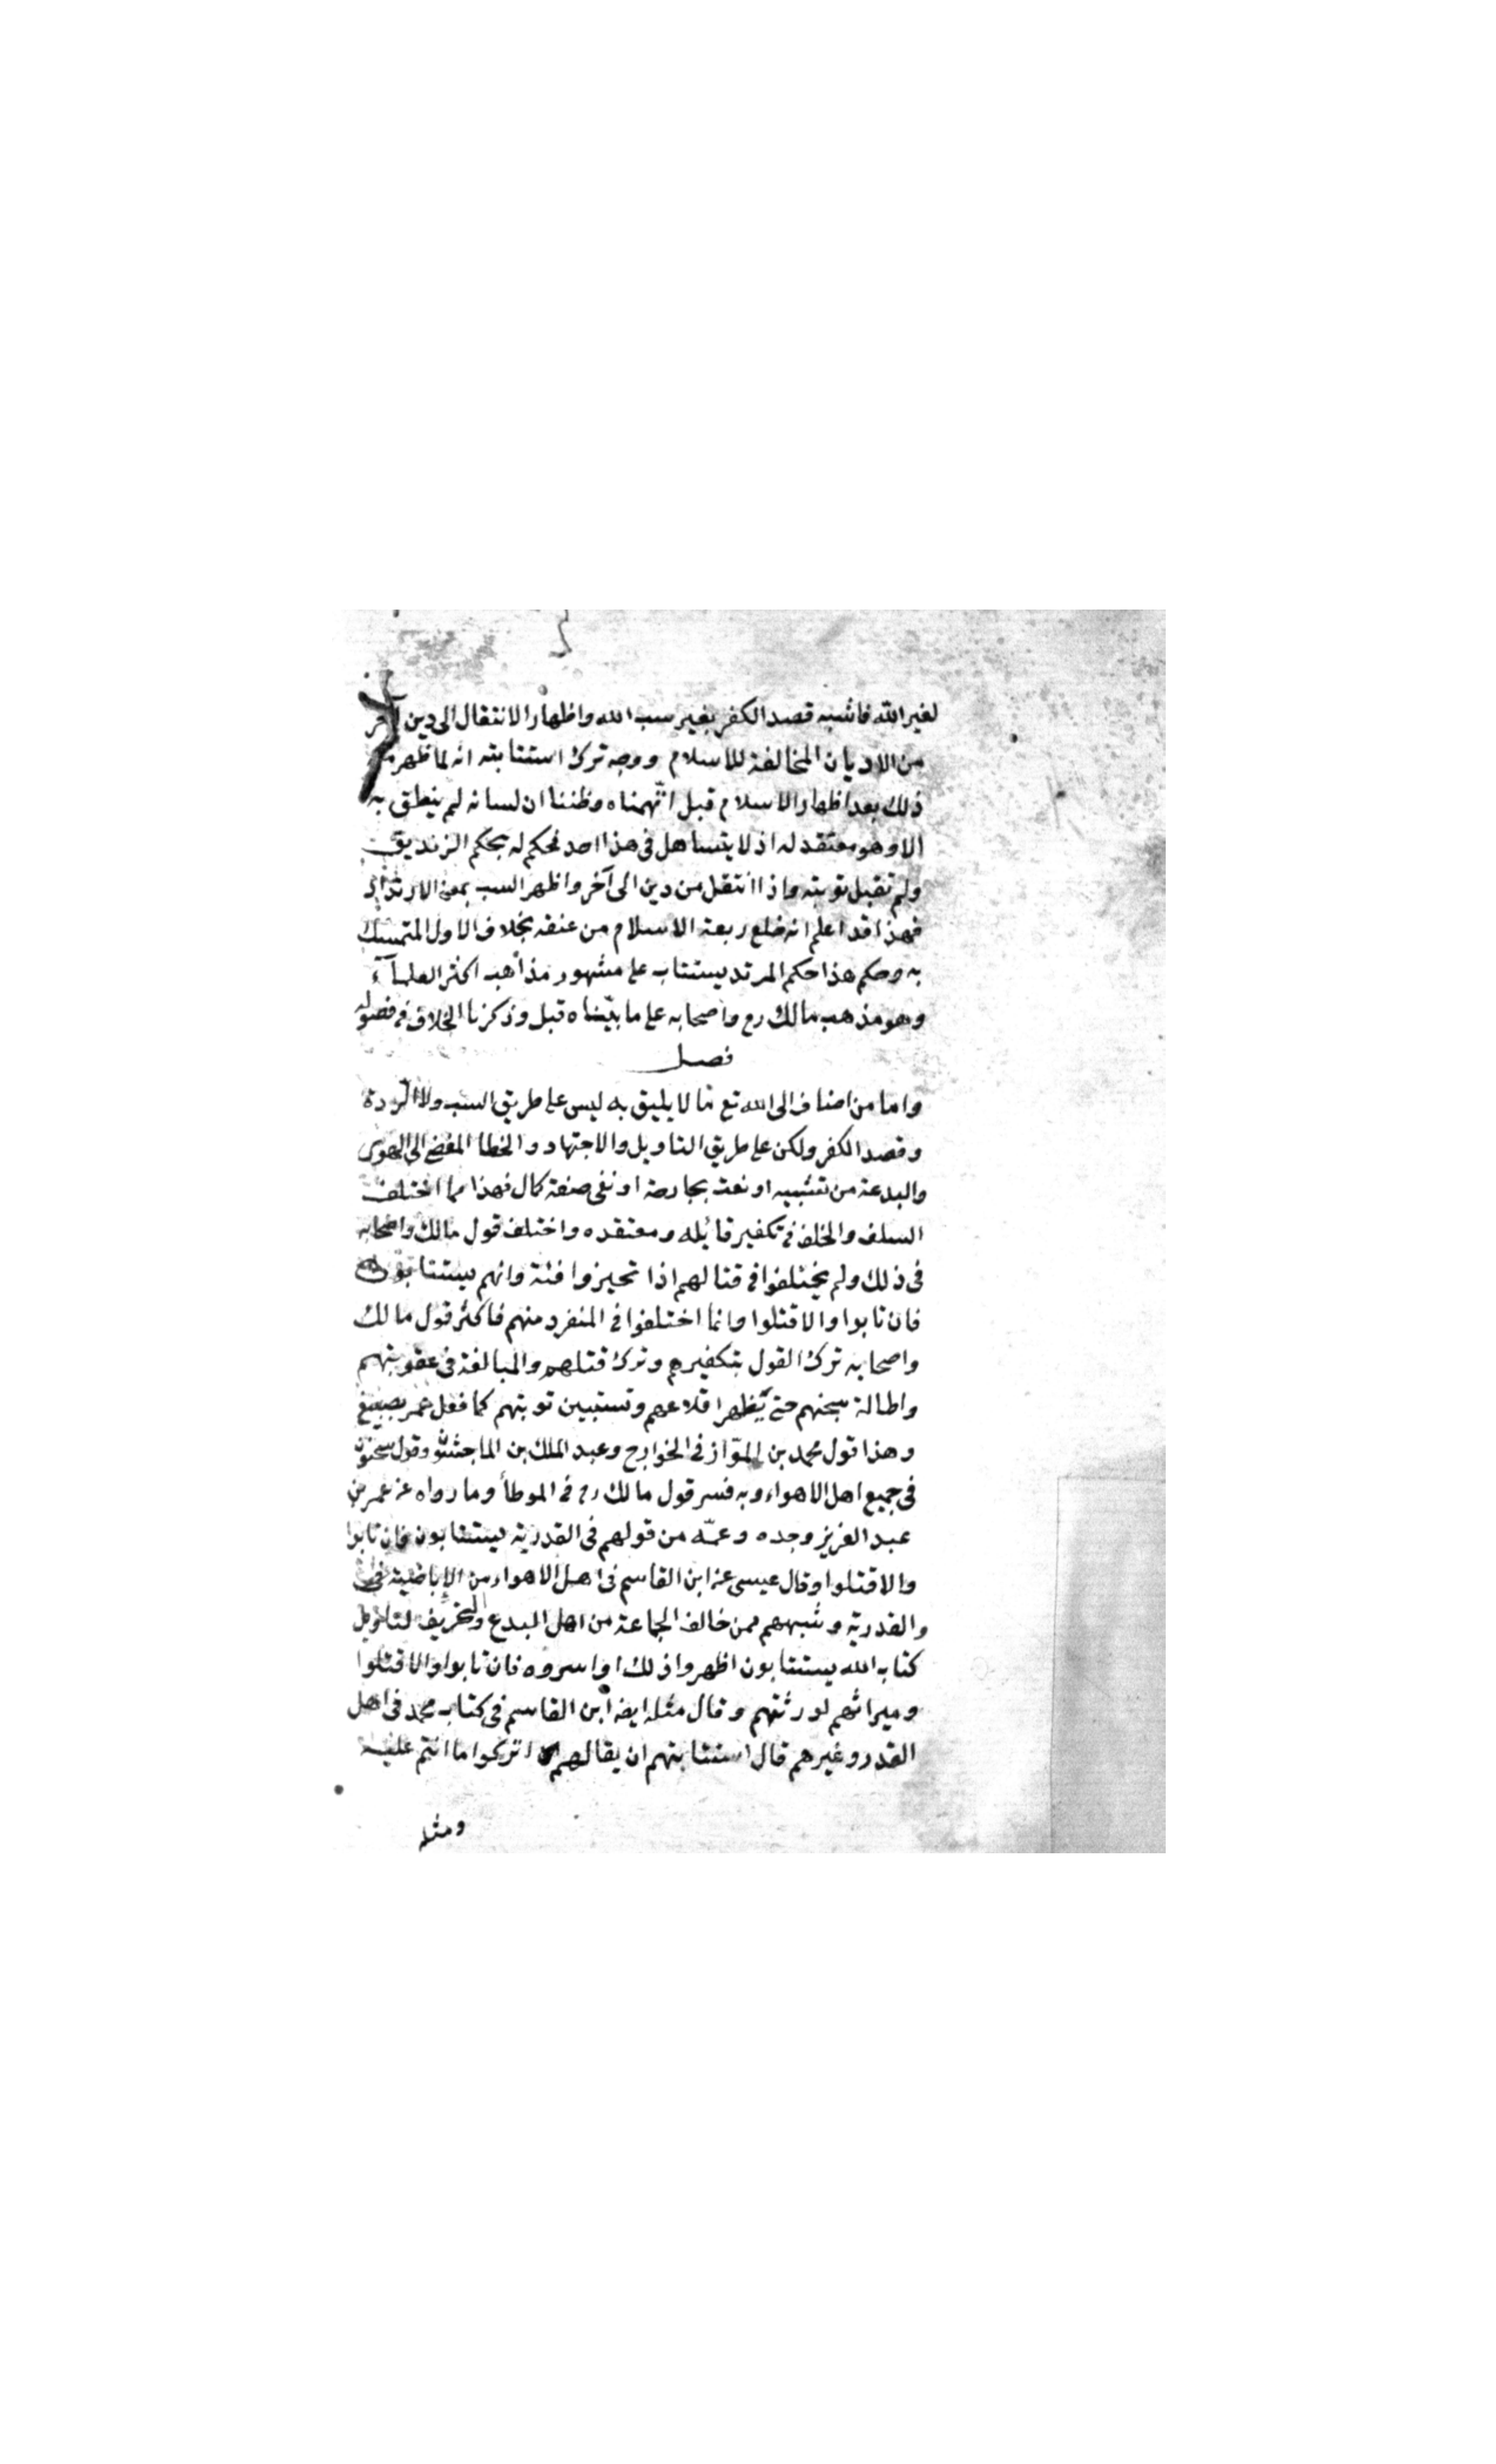 لغير الله فاشبه قصد الكفر بغير سب الله واظهار الانتقال الى دين آخر
من الاديان المخالفة للاسلام ووجه ترك استتابته انه لما ظهر منه
ذلك بعد اظهار الاسلام قبل اتّهمناه وظننا ان لسانه لم ينطق به
الا وهو معتقد له اذ لا يتساهل فى هذا احد فحكم له بحكم الزنديق
ولم تقبل توبته واذا انتقل من دين الى آخر واظهر السب بمعنى الارتداد
فهذا قد اعلم انه خلع ربعة الاسلام من عنقه بخلاف الاول المتمسك
به وحكم هذا حكم المرتد يستتاب على مشهور مذاهب اكثر العلمآء
وهو مذهب مالك رح واصحابه على ما بيّناه قبل وذكرنا الخلاف فى فصوله
فصل
واما من اضاف الى الله تع ما لا يليق به ليس على طريق السب ولا الردة
وقصد الكفر ولكن على طريق التاويل والاجتهاد والخطا المفضى الى الهوى
والبدعة من تشبيه او نعت بجارحة او نفى صفة كمال فهذا مما اختلف
السلف والخلف فى تكفير قائله ومعتقده واختلف قول مالك واصحابه
فى ذلك ولم يختلفوا فى قتالهم اذا تحيزوا فئة وانهم يستتابون
فان تابوا والا قتلوا وانما اختلفوا فى المنفرد منهم فاكثر قول مالك
واصحابه ترك القول بتكفيرهم وترك قتلهم والمبالغة فى عقوبتهم
واطالة سجنهم حتى يظهر اقلاعهم وتستبين توبتهم كما فعل عمر بصبيغ
وهذا قول محمد بن الموّاز فى الخوارج وعبد الملك بن الماجشون وقول سحنون
فى جميع اهل الاهواء وبه فسر قول مالك رح فى الموطأ وما رواه عن عمر بن
عبد العزيز وجده وعمّه من قولهم فى القدرية يستتابون فان تابوا
والا قتلوا وقال عيسى عن ابن القاسم فى اهل الاهواء من الإباضية
والقدرية وشبههم ممن خالف الجماعة من اهل البدع والتحريف لتاويل
كتاب الله يستتابون اظهروا ذلك او اسروه فان تابوا والا قتلوا
وميراثهم لورثتهم وقال مثله ايضا ابن القاسم فى كتاب محمد فى اهل
القدر وغيرهم قال استتابتهم ان يقال لهم اتركوا ما انتم عليه
ومثله